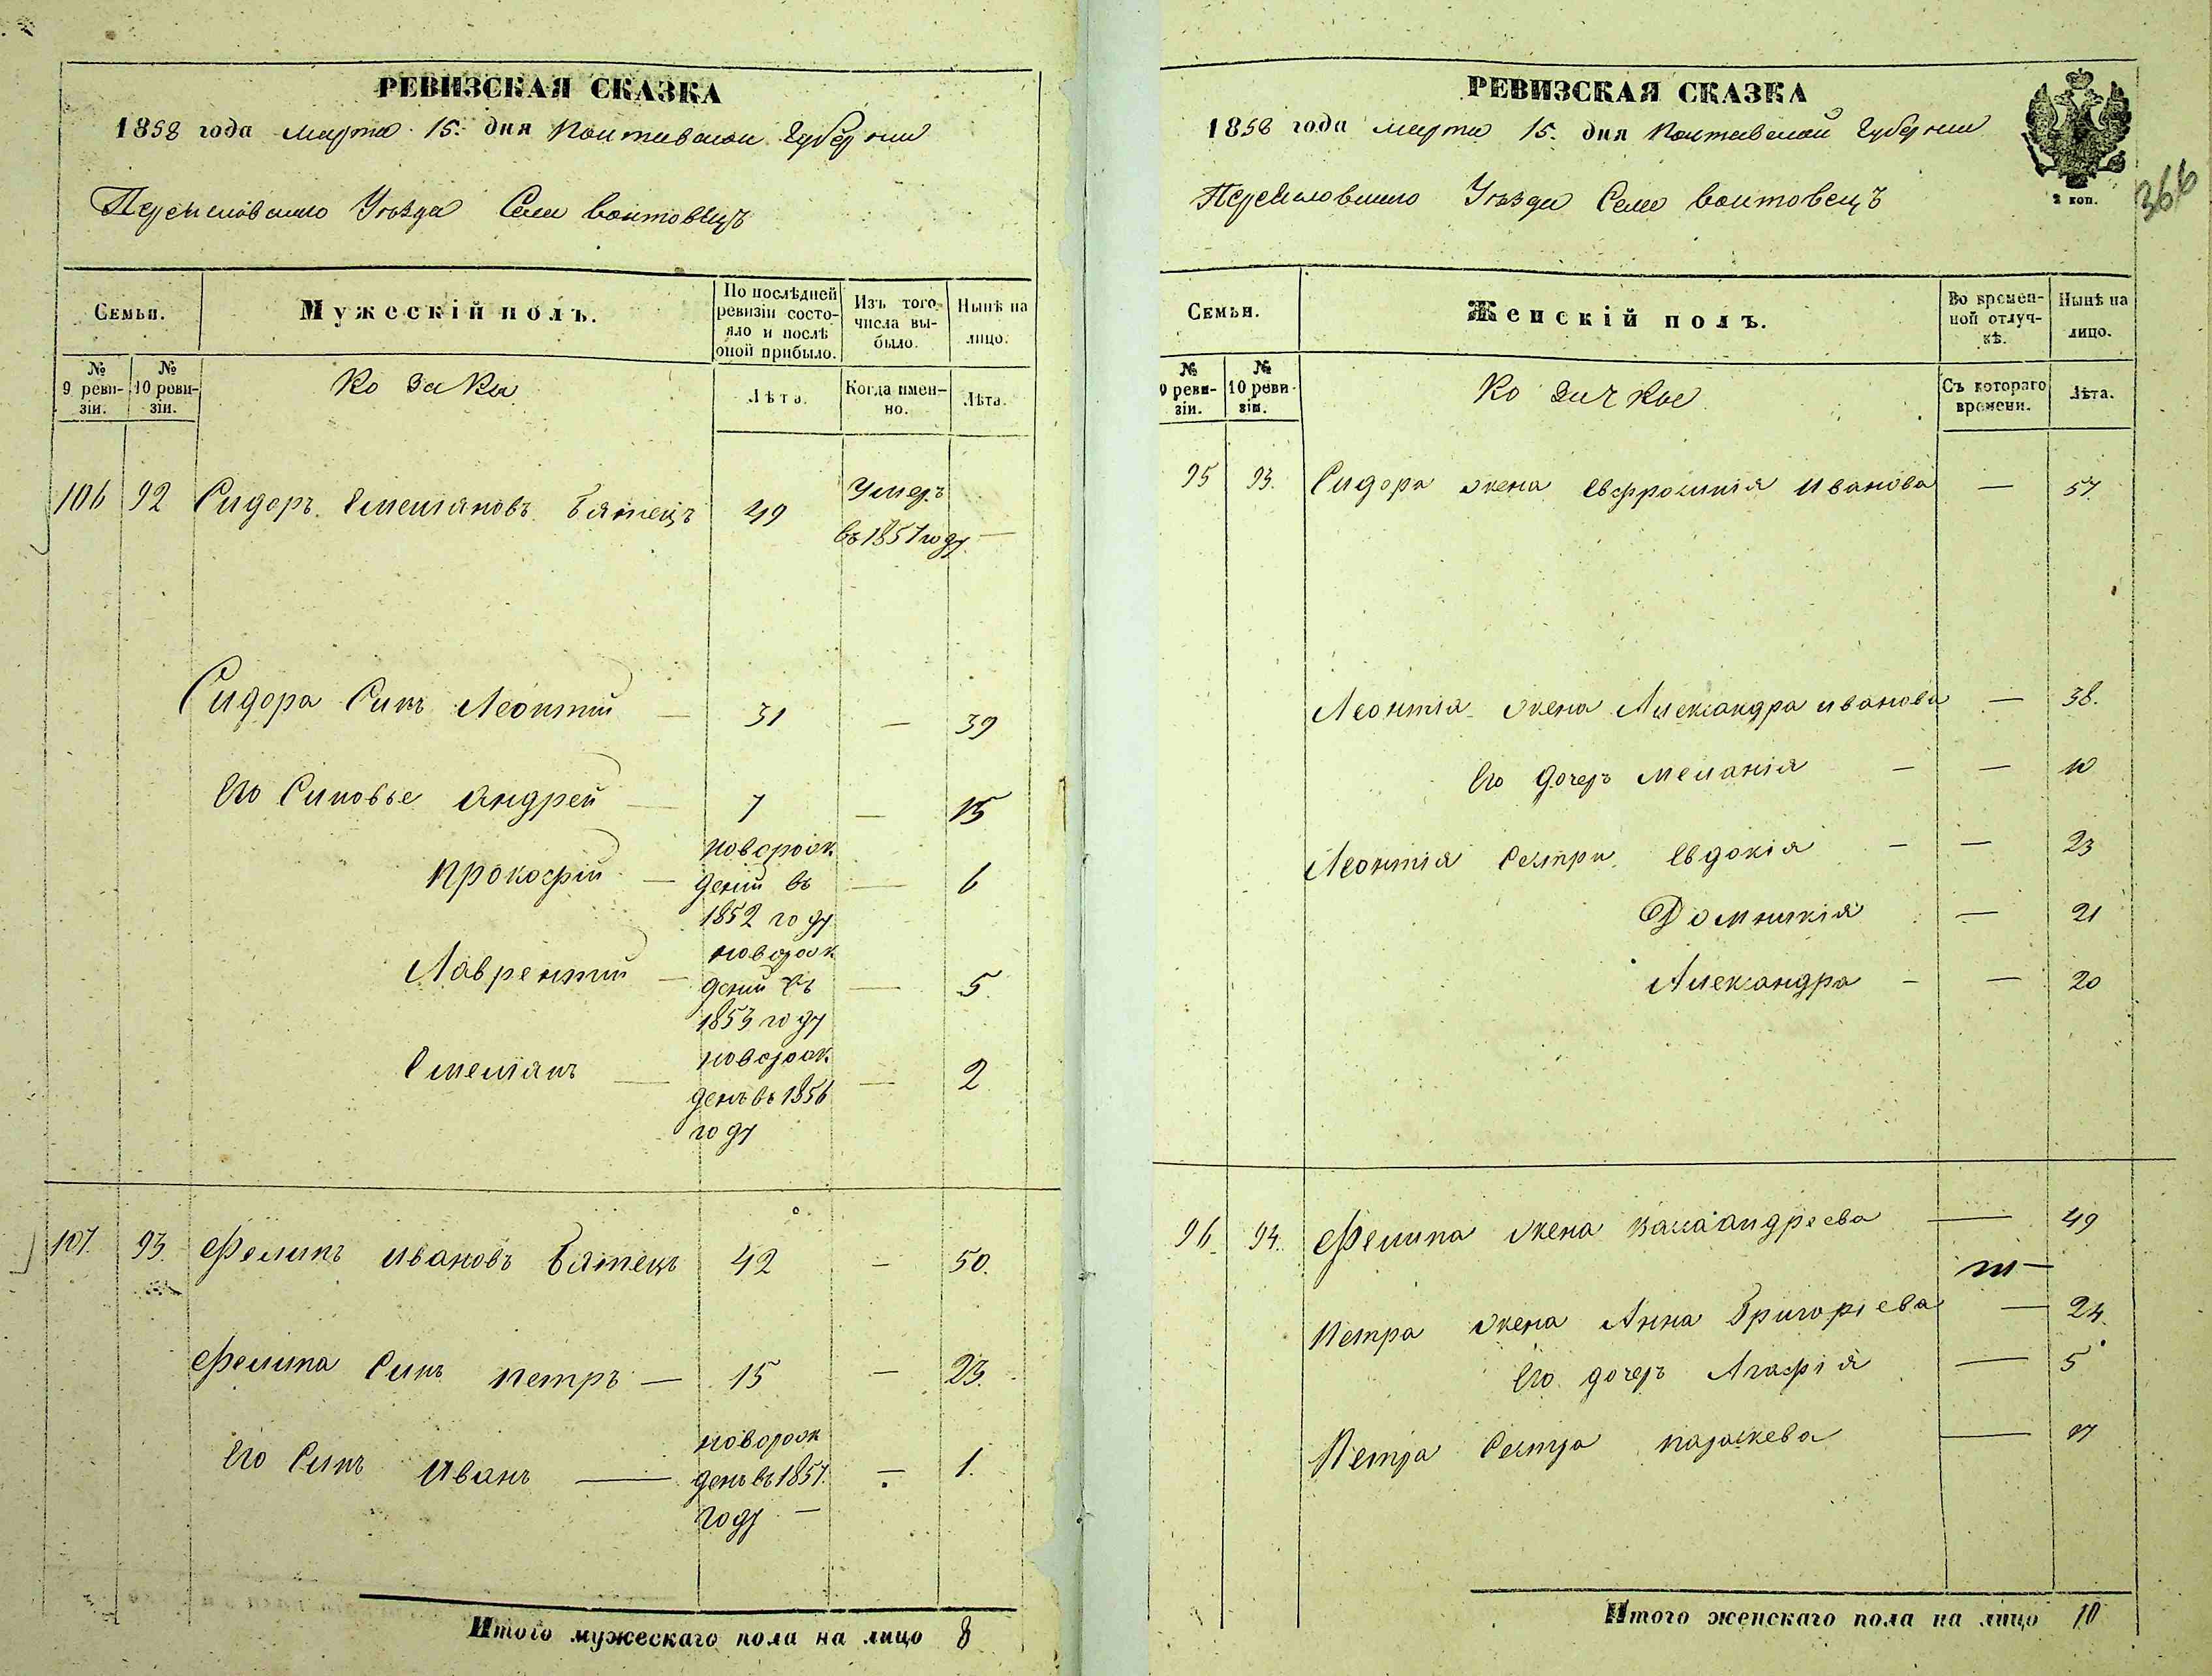 РЕВИЗСКАЯ СКАЗКА
1858 года марта 15. дня Полтавской Губернии
Переяславского Уѣзда Села Воитовецъ
Семьи.
Мужескій полъ.
По послѣдней ревизіи состояло и послѣ оной прибыло.
Изъ того числа выбыло.
Нынѣ на лицо.
№ 9 ревизіи.
№ 10 ревизіи.
Козаки
Лѣта.
Когда именно.
Лѣта.
106 92 Сидоръ Емеляновъ Бятецъ 49 Умеръ
въ 1857 году —
Сидора Синъ Леонтий — 31 — 39
Его Синовье Андрей — 7 — 15
Прокофій — новорож
деній въ — 6
1852 году
Лаврентий — новорож
деній въ — 5.
1853 году
Емелянъ — новорож
денъ въ 1856 — 2
году
107. 93. Фелипъ Ивановъ Бятецъ 42 — 50.
Фелипа Синъ Петръ — 15 — 23.
Его Синъ Иванъ — новорож
денъ въ 1857. — 1.
году —
Итого мужескаго пола на лицо 8
РЕВИЗСКАЯ СКАЗКА
1858 года марта 15. дня Полтавской Губернии
Переяславского Уѣзда Села Воитовецъ
2 коп.
366
Семьи.
Женскій полъ.
Во временной отлучкѣ.
Нынѣ на лицо.
№ 9 ревизіи.
№ 10 ревизіи.
Козачкы
Съ котораго времени.
Лѣта.
95 93. Сидора жена Евфросинія Иванова — 57.
Леонтія жена Александра Иванова — 38.
Его дочерь Меланія — — 10
Леонтія сестри Евдокія — — 23
Домникія — 21
Александра — — 20
96. 94. Фелипа жена Андреева — 49
Петра жена Анна Григоріева — 24.
Его дочерь Агафія — 5
Петра Сестра Параскева —
Итого женскаго пола на лицо 10